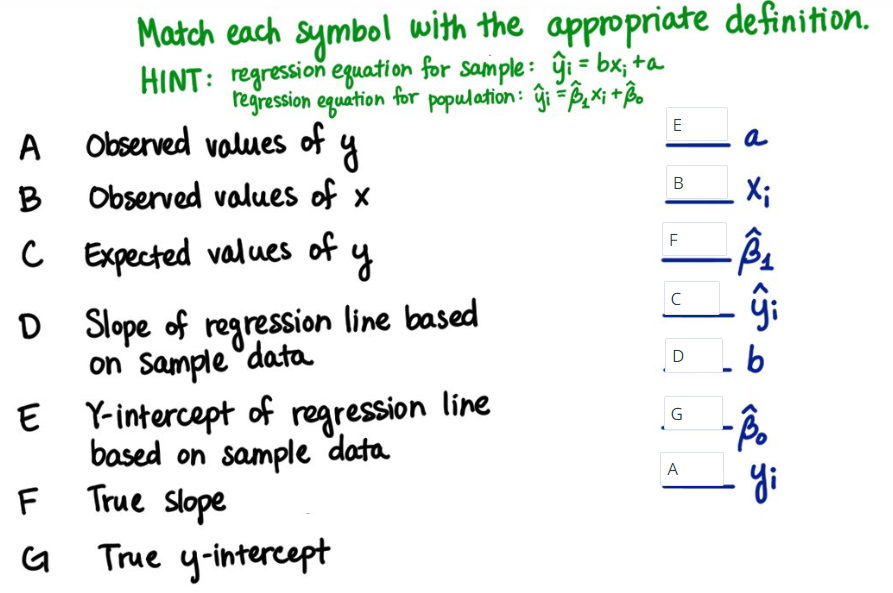 Match each symbol with the appropriate definition.
HINT: regression equation for sample: ŷᵢ = bxᵢ + a
regression equation for population: ŷᵢ = β̂₁xᵢ + β̂₀
A Observed values of y
B Observed values of x
C Expected values of y
D Slope of regression line based
on sample data
E Y-intercept of regression line
based on sample data
F True slope
G True y-intercept
E a
B xᵢ
F β̂₁
C ŷᵢ
D b
G β̂₀
A yᵢ